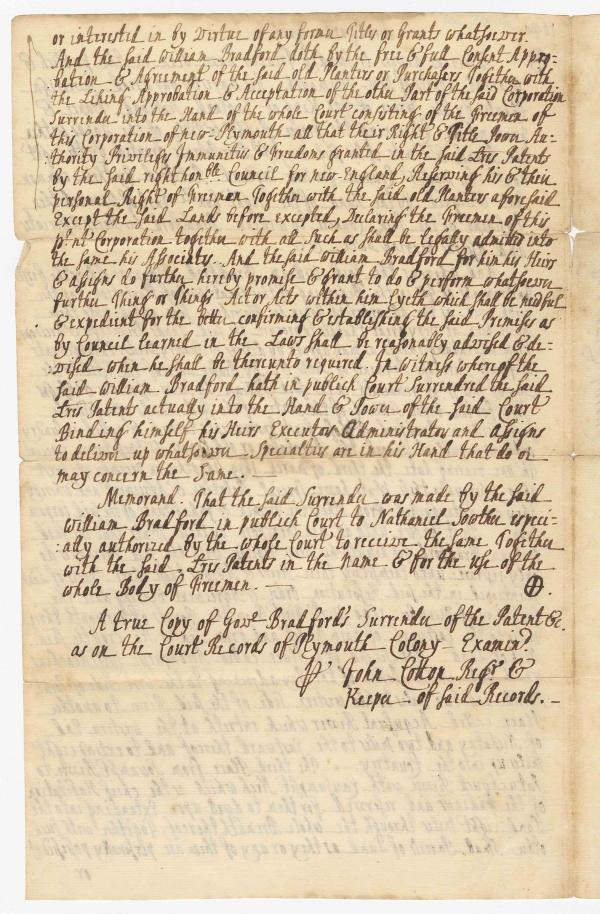 or interested in by Virtue of any former Titles or Grants whatsoever.
And the said William Bradford doth by the free & full Consent Appro-
:bation & Agreement of the said old Planters or Purchasers Together with
the Liking Approbation & Acceptation of the other Part of the said Corporation
Surrender into the Hand of the whole Court consisting of the Freemen of
this Corporation of new-Plymouth all that their Right & Title Power Au-
thority Privileges Immunities & Freedoms granted in the said Lres Patents
by the said right honble Council for new-England, Reserving his & their
personal Right of Freemen Together with the said old Planters aforesaid
Except the said Lands before excepted, Declaring the Freemen of this
psnt Corporation together with all such as shall be legally admitted into
the same his Associates. And the said William Bradford for him his Heirs
& assigns do further hereby promise & grant to do & perform whatsoever
further Thing or Things Act or Acts within him lyeth which shall be needful
& expedient for the better confirming & establishing the said Premises as
by Council learned in the Laws shall be reasonably advised & de-
:vised when he shall be thereunto required. In Witness whereof the
said William Bradford hath in publick Court Surrendred the said
Lres Patents actually into the Hand & Power of the said Court
Binding himself his Heirs Executors Administrators and Assigns
to deliver up whatsoever Specialties are in his Hand that do or
may concern the Same. —
Memorand. That the said Surrender was made by the said
William Bradford in publick Court to Nathaniel Sowther especi-
:ally authorized by the whole Court to receive the same Together
with the said Lres Patents in the Name & for the use of the
whole Body of Freemen. —
A true Copy of Govr Bradford's Surrender of the Patent &c.
as on the Court Records of Plymouth Colony Examind.
John Cotton Regr &
Keeper of said Records. —
or